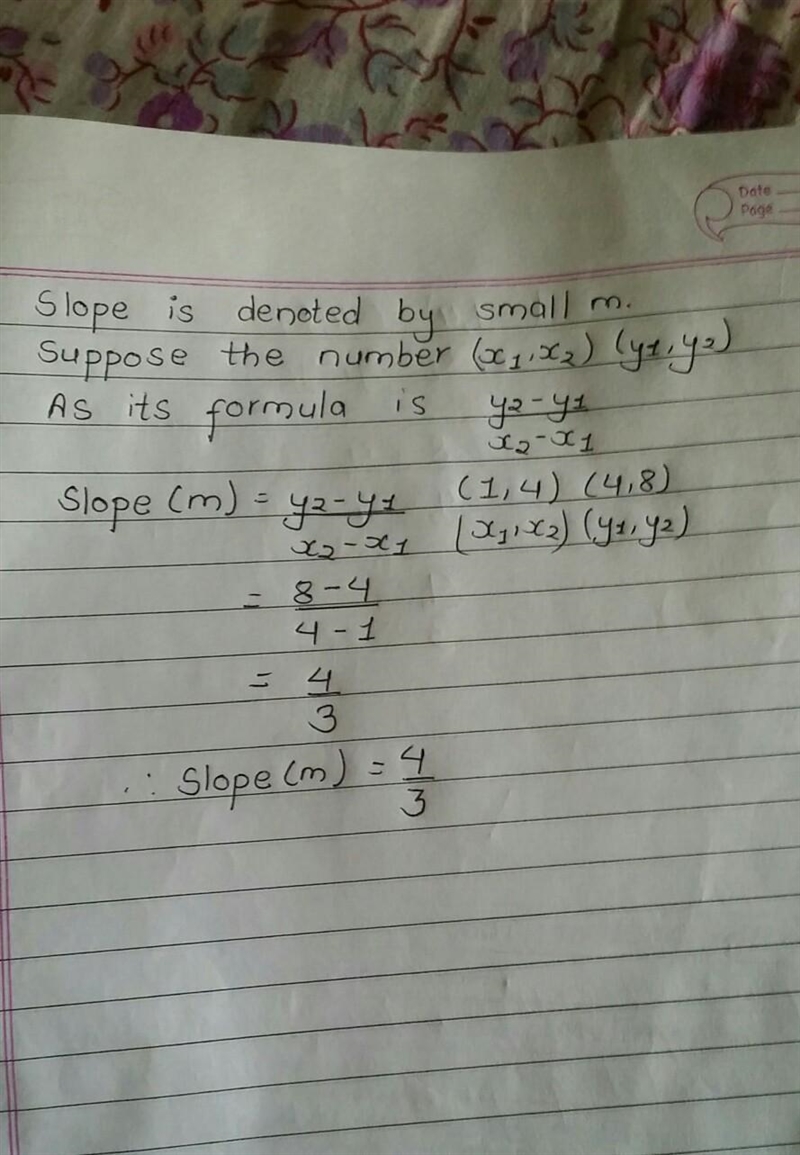 Date
Page
Slope is denoted by small m.
Suppose the number (x₁,x₂) (y₁,y₂)
As its formula is y₂-y₁/x₂-x₁
Slope (m) = y₂-y₁/x₂-x₁ (1,4) (4,8)
(x₁,x₂) (y₁,y₂)
= 8-4/4-1
= 4/3
∴ Slope (m) = 4/3